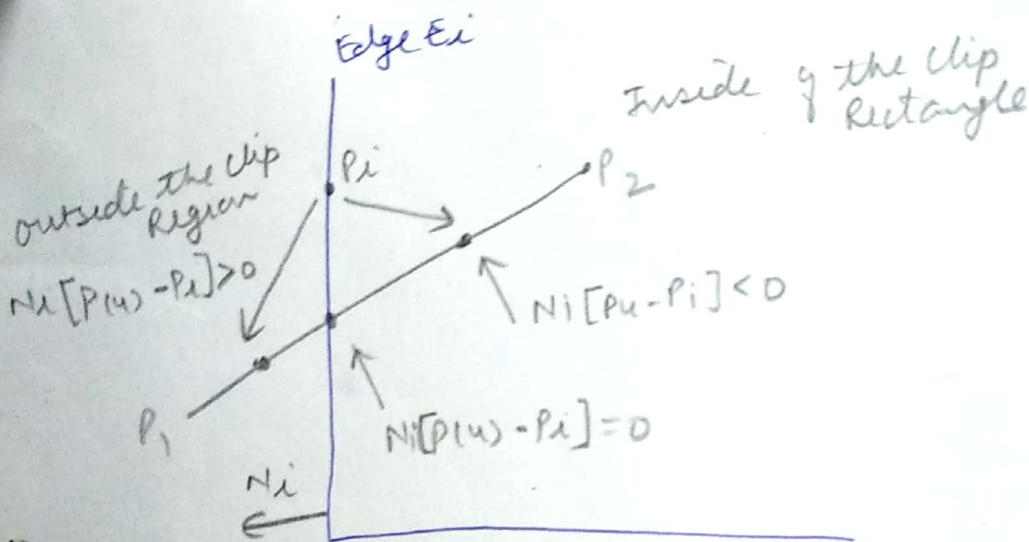 Edge Ei
Inside of the Clip
Rectangle
Pi
P2
outside the Clip
Region
Ni[P(u)-Pi]>0
Ni[Pu-Pi]<0
P1
Ni[P(u)-Pi]=0
Ni